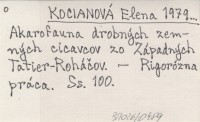 KOCIANOVÁ Elena 1979...
Akarofauna drobných zem-
ných cicavcov zo Západných
Tatier-Roháčov. — Rigorózna
práca. Ss. 100.